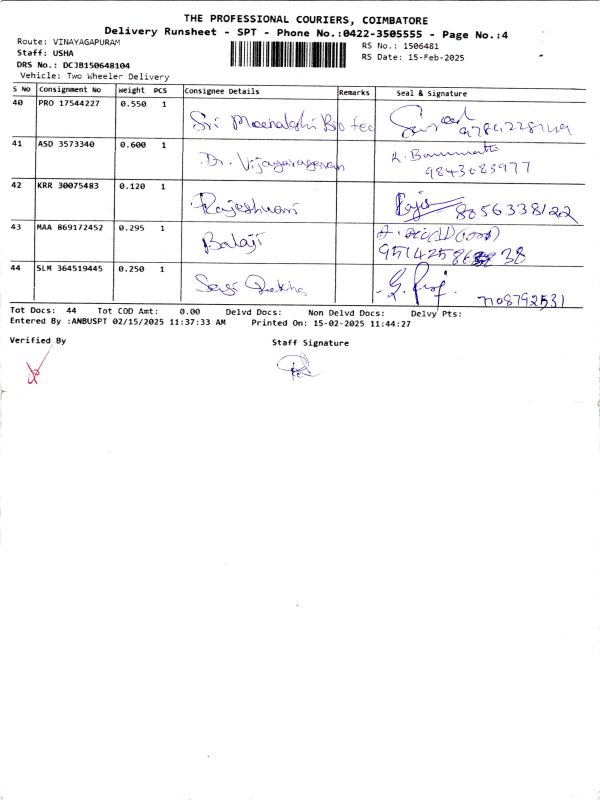 THE PROFESSIONAL COURIERS, COIMBATORE
Delivery Runsheet - SPT - Phone No.:0422-3505555 - Page No.:4
Route: VINAYAGAPURAM
RS No.: 1506481
Staff: USHA
RS Date: 15-Feb-2025
DRS No.: DCJB150648104
Vehicle: Two Wheeler Delivery
S No Consignment No Weight PCS Consignee Details Remarks Seal & Signature
40 PRO 17544227 0.550 1 Sri Meenakshi Bio tec
41 ASD 3573340 0.600 1 Dr. Vijayaragavan
9843083977
42 KRR 30075483 0.120 1 Rajeshwari 8056338122
43 MAA 869172452 0.295 1 Balaji
44 SLM 364519445 0.250 1
Tot Docs: 44 Tot COD Amt: 0.00 Delvd Docs: Non Delvd Docs: Delvy Pts:
Entered By :ANBUSPT 02/15/2025 11:37:33 AM Printed On: 15-02-2025 11:44:27
Verified By Staff Signature